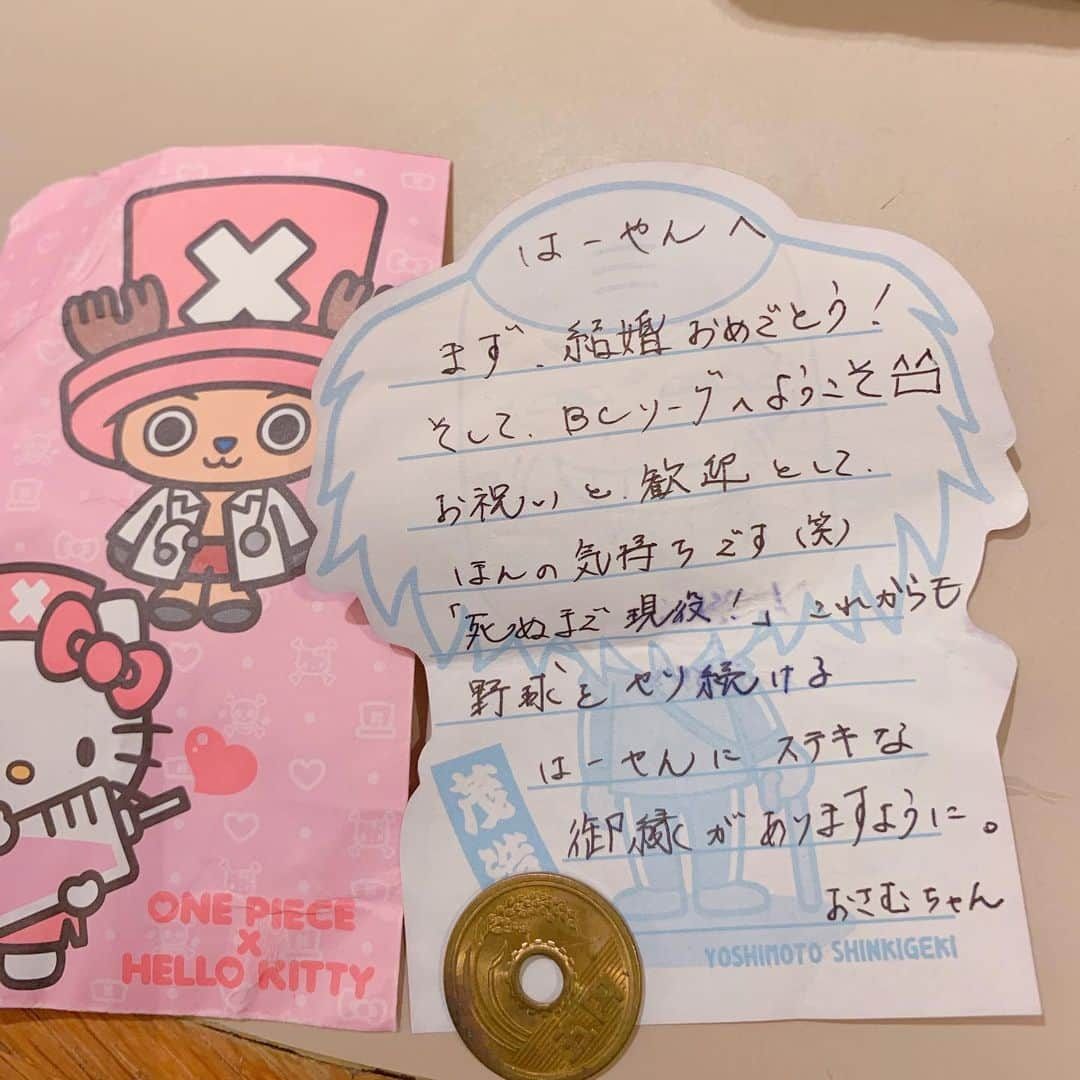 はーやんへ
まず、結婚おめでとう！
そして、BCリーグへようこそ
お祝いと、歓迎として、
ほんの気持ちです(笑)
「死ぬまで現役！」これからも
野球をやり続ける
はーやんにステキな
御縁がありますように。
おさむちゃん
茂造
YOSHIMOTO SHINKIGEKI
ONE PIECE
×
HELLO KITTY
五円